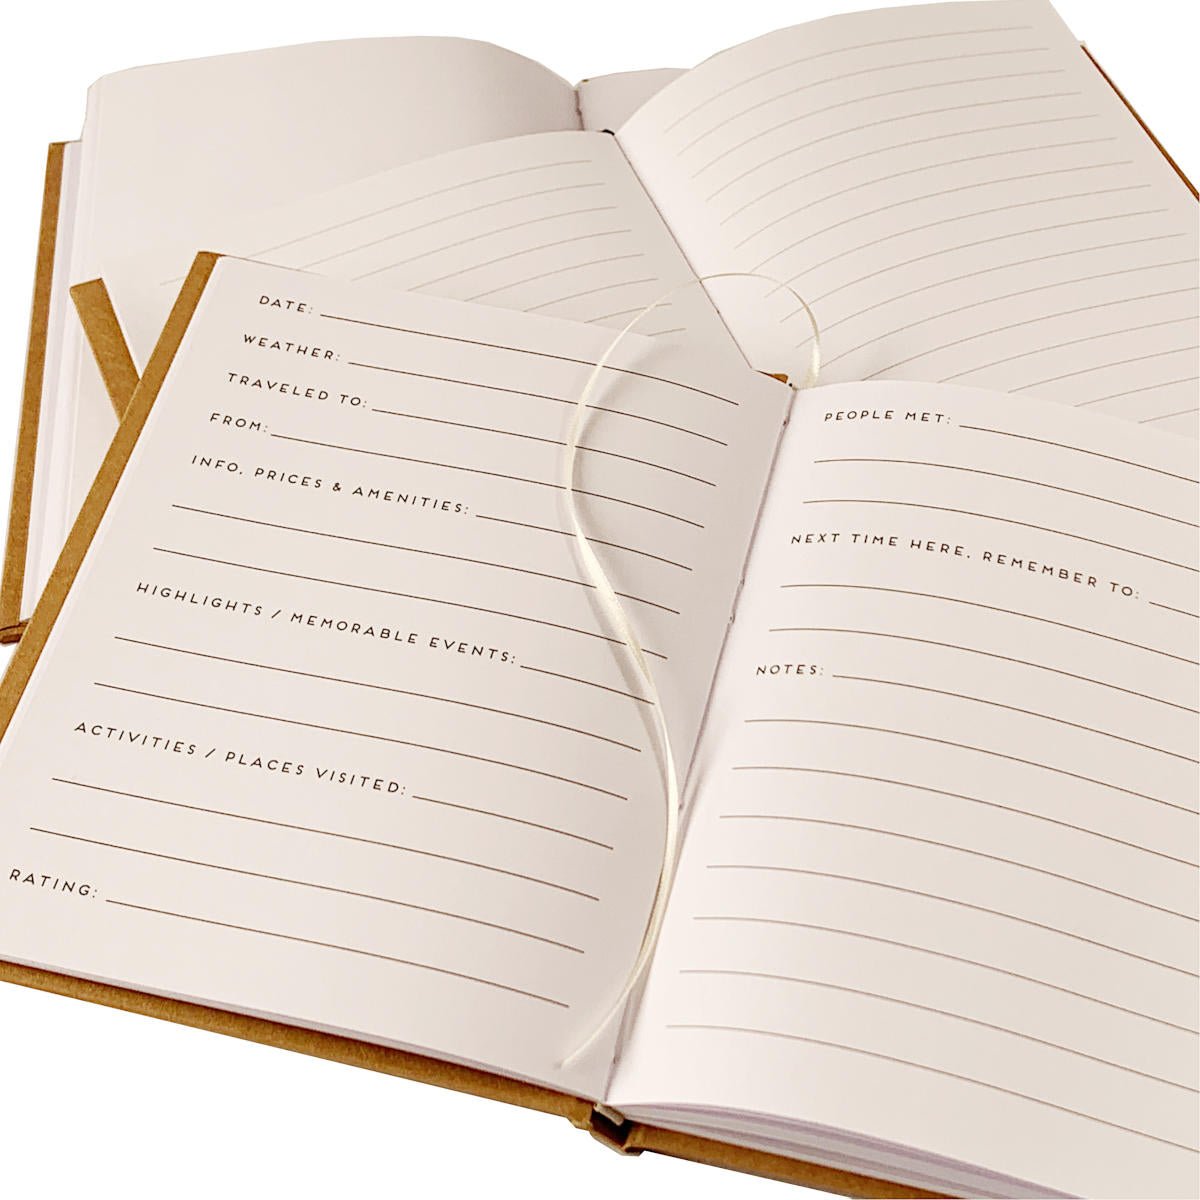 DATE:
WEATHER:
TRAVELED TO:
FROM:
INFO, PRICES & AMENITIES:
HIGHLIGHTS / MEMORABLE EVENTS:
ACTIVITIES / PLACES VISITED:
RATING:
PEOPLE MET:
NEXT TIME HERE, REMEMBER TO:
NOTES: